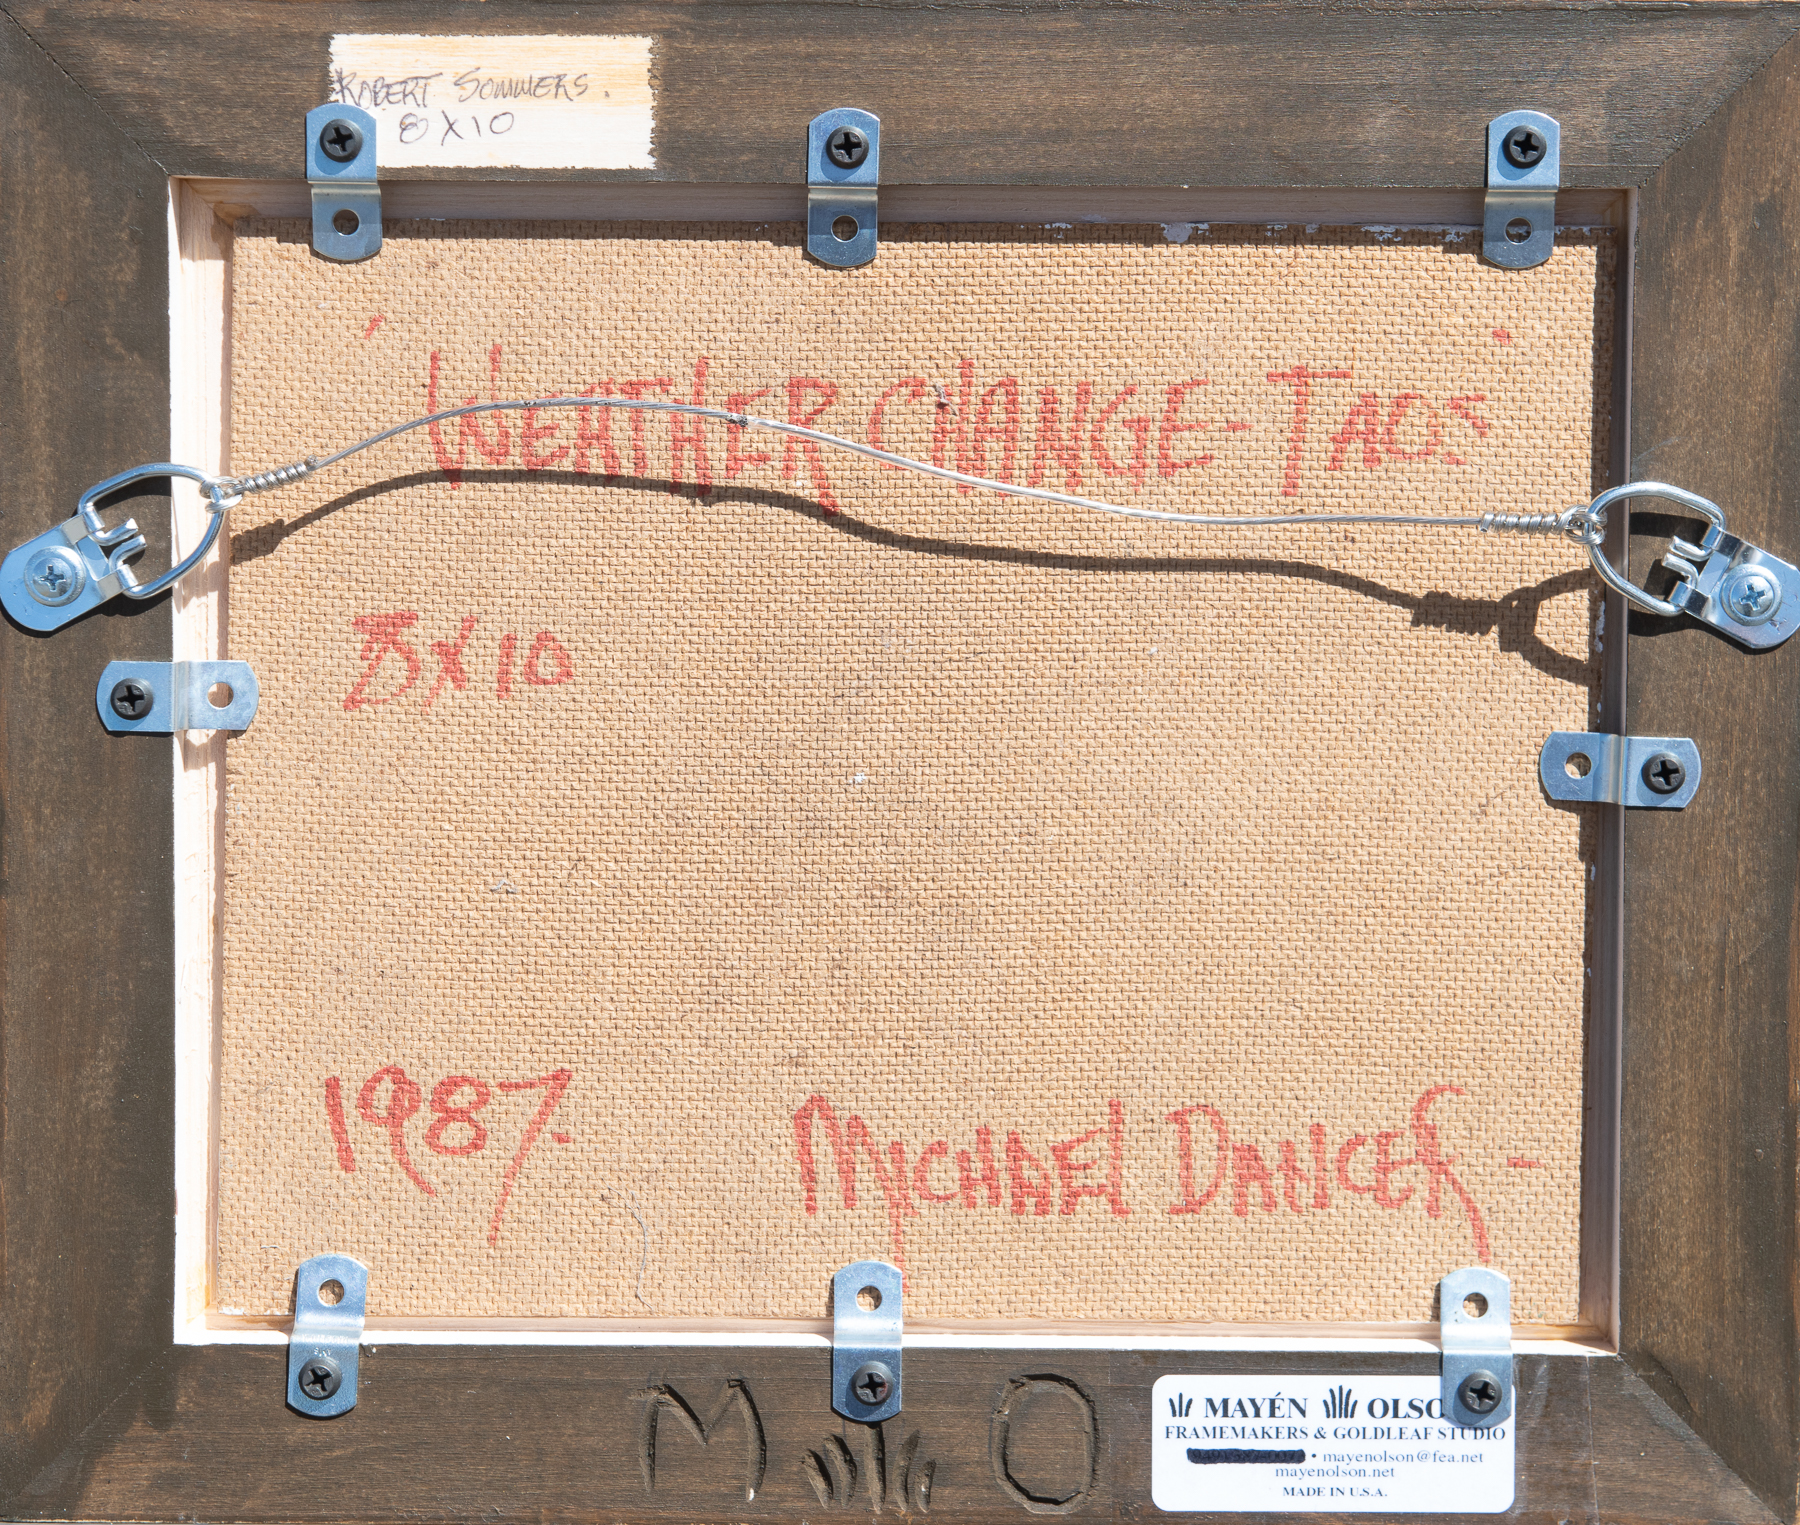 ROBERT SOMMERS.
8 X 10
"WEATHER CHANGE - TAOS"
8 X 10
1987 -
MICHAEL DANCER -
M O
MAYÉN OLSO
FRAMEMAKERS & GOLDLEAF STUDIO
• mayenolson@fea.net
mayenolson.net
MADE IN U.S.A.